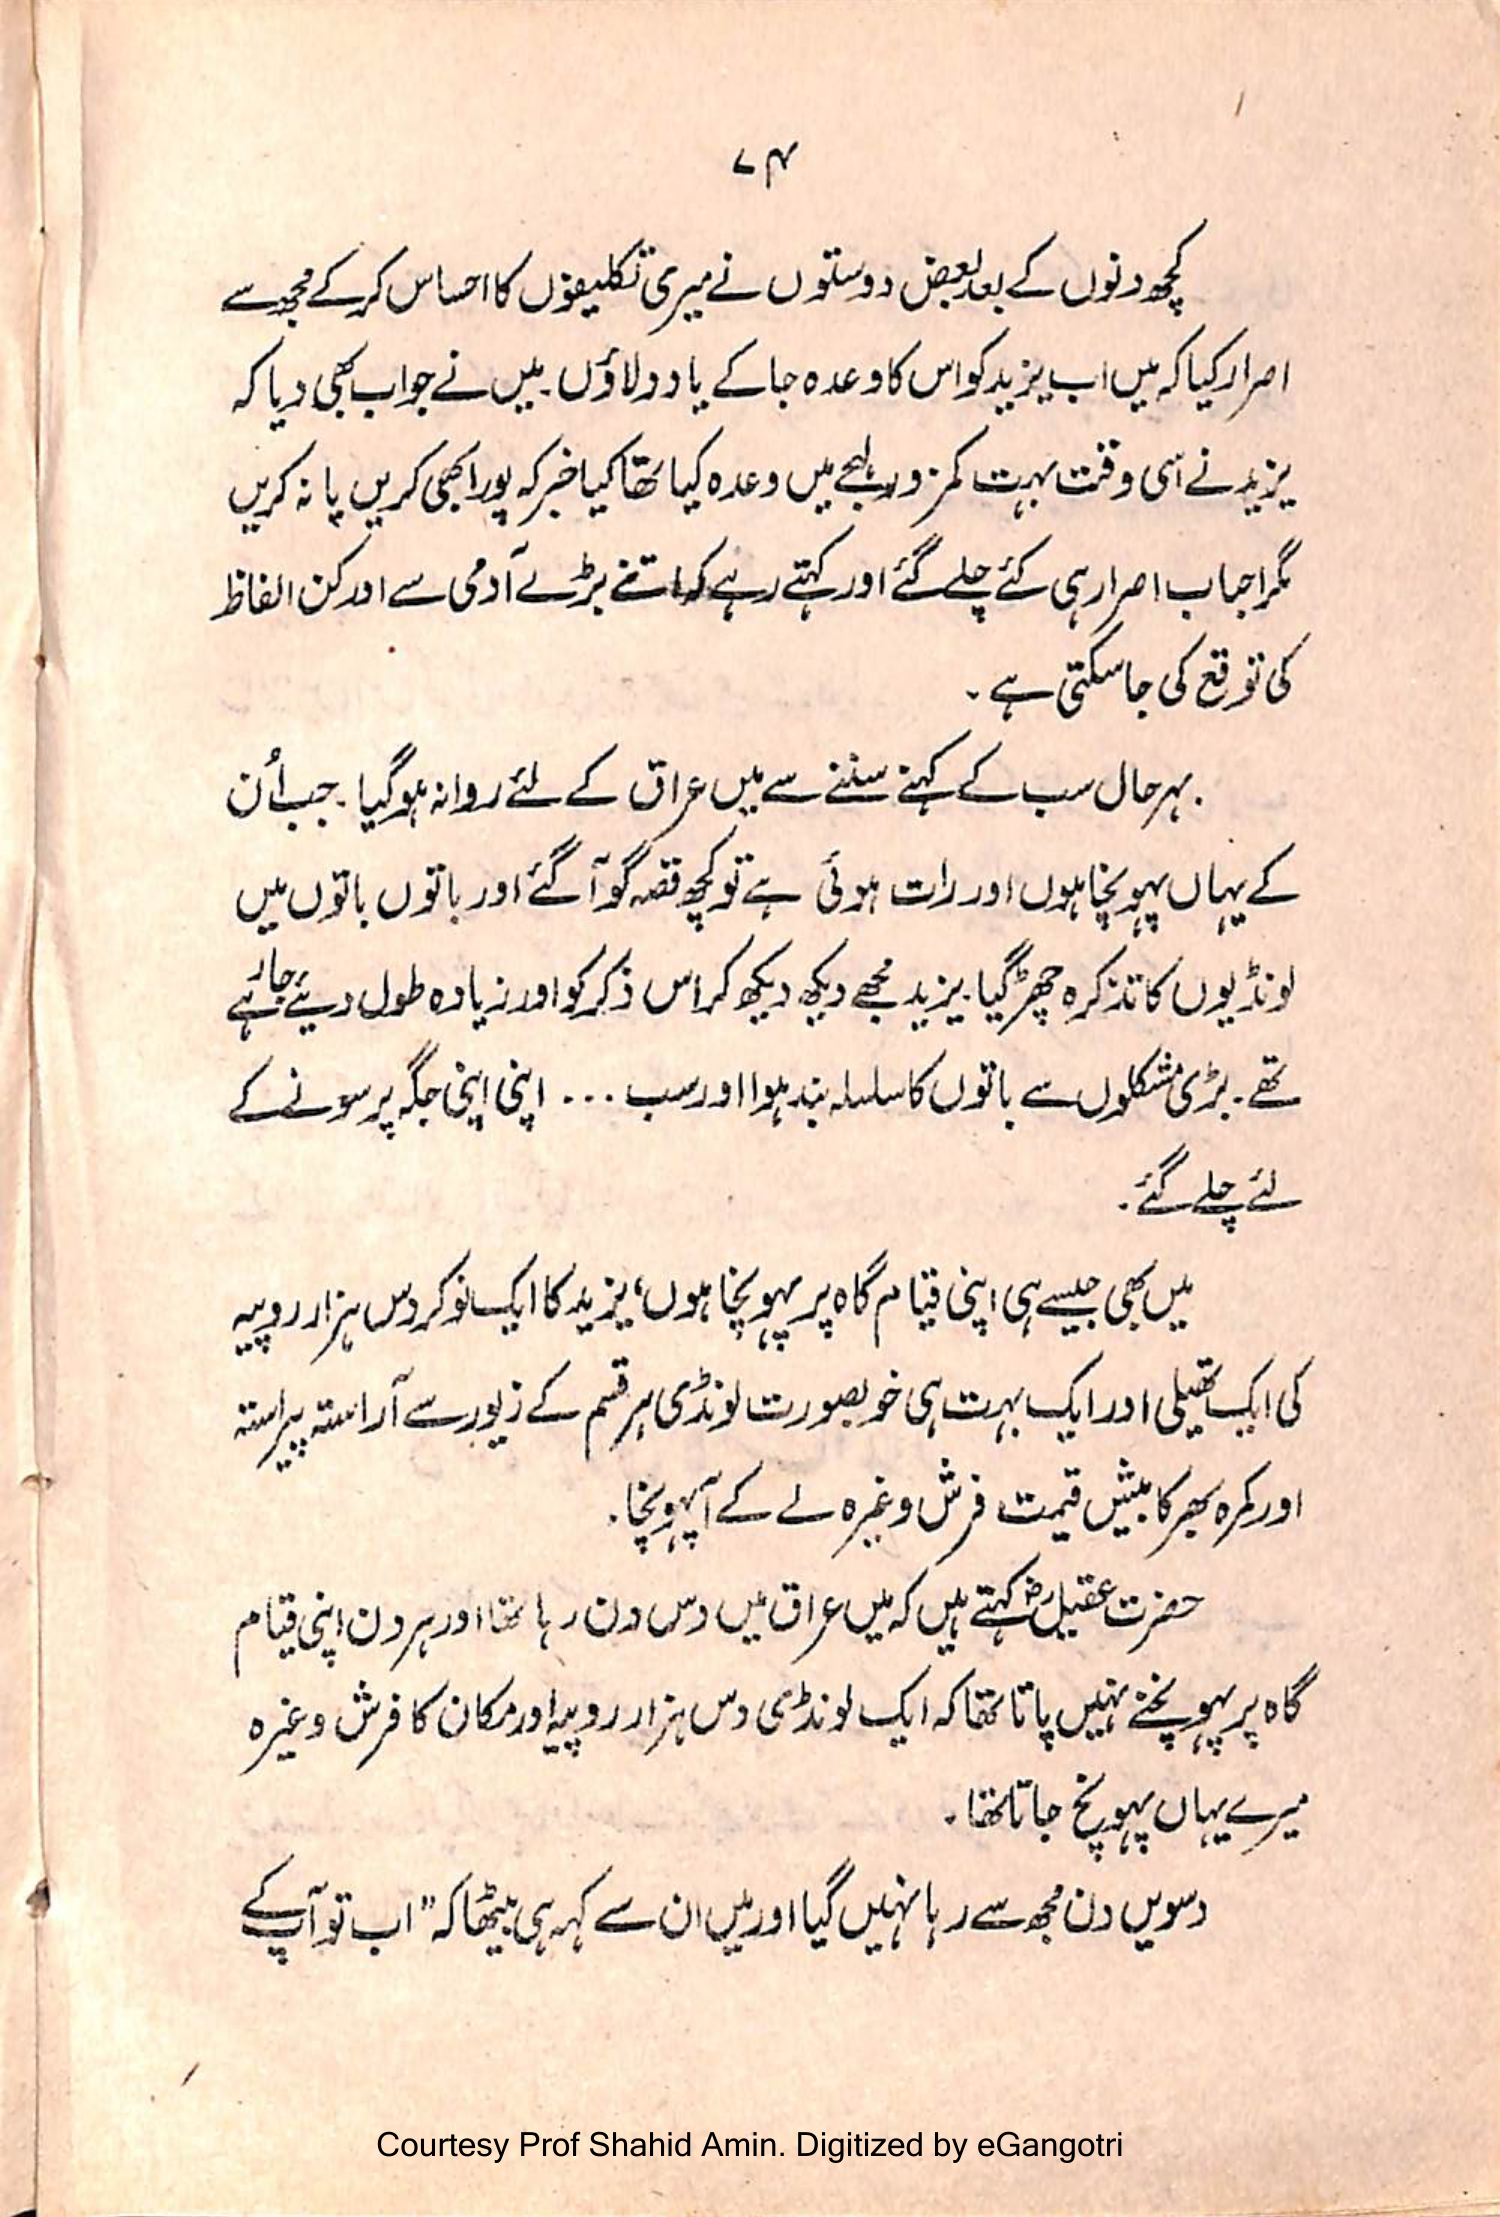 ۷۴
کچھ دنوں کے بعد بعض دوستوں نے میری تکلیفوں کا احساس کرکے مجھ سے
اصرار کیا کہ میں اب یزید کو اس کا وعدہ جا کے یاد دلاؤں۔ میں نے جواب بھی دیا کہ
یزید نے اسی وقت بہت کمزور لہجے میں وعدہ کیا تھا کیا خبر کہ پورا بھی کریں یا نہ کریں
مگر احباب اصرار ہی کئے چلے گئے اور کہتے رہے کہ اتنے بڑے آدمی سے اور کن الفاظ
کی توقع کی جا سکتی ہے۔
بہرحال سب کے کہنے سننے سے میں عراق کے لئے روانہ ہو گیا۔ جب اُن
کے یہاں پہونچا ہوں اور رات ہوئی ہے تو کچھ قصہ گو آ گئے اور باتوں باتوں میں
لونڈیوں کا تذکرہ چھڑ گیا۔ یزید مجھے دیکھ دیکھ کر اس ذکر کو اور زیادہ طول دیئے جا رہے
تھے۔ بڑی مشکلوں سے باتوں کا سلسلہ بند ہوا اور سب ... اپنی اپنی جگہ پر سونے کے
لئے چلے گئے۔
میں بھی جیسے ہی اپنی قیام گاہ پر پہونچا ہوں، یزید کا ایک نوکر دس ہزار روپیہ
کی ایک تھیلی اور ایک بہت ہی خوبصورت لونڈی ہر قسم کے زیور سے آراستہ پیراستہ
اور کمرہ بھر کا بیش قیمت فرش وغیرہ لے کے آپہونچا۔
حضرت عقیلؓ کہتے ہیں کہ میں عراق میں دس دن رہا تھا اور ہر دن اپنی قیام
گاہ پر پہونچنے نہیں پاتا تھا کہ ایک لونڈی دس ہزار روپیہ اور مکان کا فرش وغیرہ
میرے یہاں پہونچ جاتا تھا۔
دسویں دن مجھ سے رہا نہیں گیا اور میں ان سے کہہ ہی بیٹھا کہ "اب تو آپ کے
Courtesy Prof Shahid Amin. Digitized by eGangotri